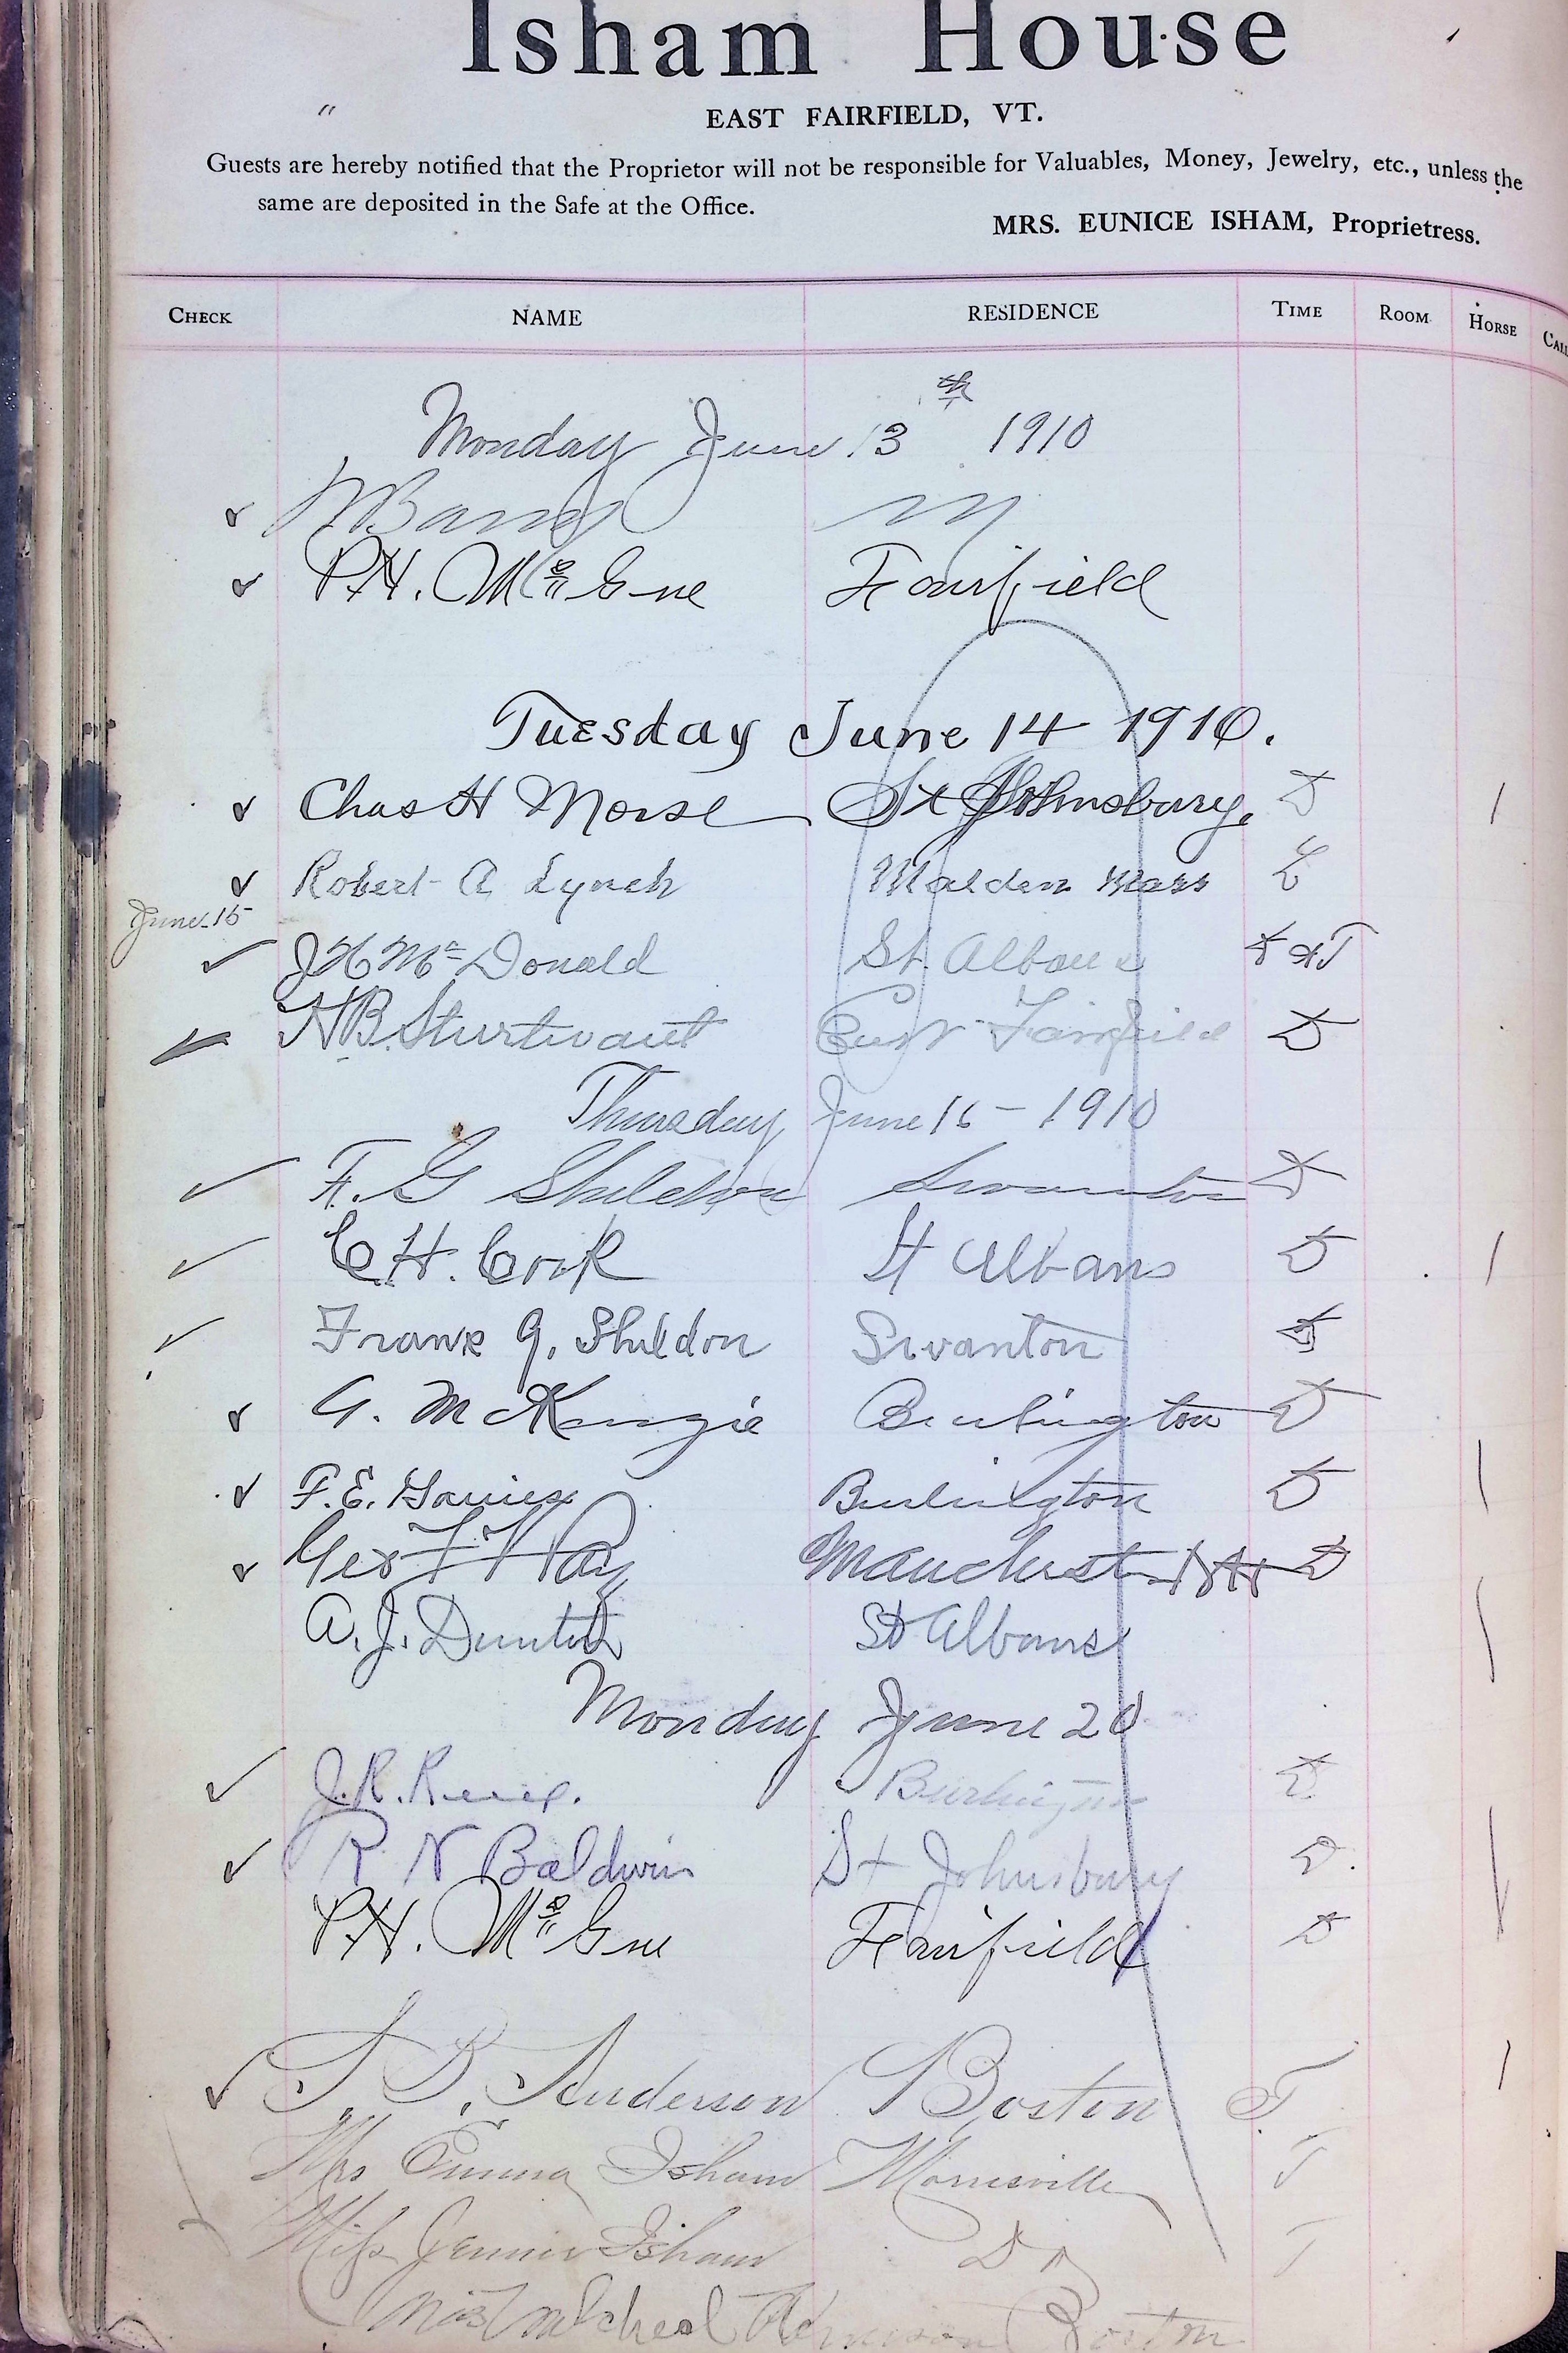 Isham House
EAST FAIRFIELD, VT.
Guests are hereby notified that the Proprietor will not be responsible for Valuables, Money, Jewelry, etc., unless the
same are deposited in the Safe at the Office.
MRS. EUNICE ISHAM, Proprietress.
CHECK NAME RESIDENCE TIME ROOM HORSE CALL
Monday June 13th 1910
P.H. Fairfield
Tuesday June 14 1910.
Chas H Morse St Johnsbury, D
Robert A Lynch Malden Mass
June 15
J H Mc Donald St Albans
H B Sturtevant East Fairfield D
Thursday June 16 - 1910
F. G Sheldon Swanton
C H. Cook St Albans D
Frank G. Sheldon Swanton
G. McKenzie Burlington D
F. E. Burlington D
Geo F Hay Manchester NH D
A. J. St Albans
Monday June 20
J. R. Burlington
R N Baldwin St Johnsbury D.
P.H. Fairfield D
Anderson Boston
Mrs Emma Isham Morrisville T
Miss Jennie Isham Do T
Boston